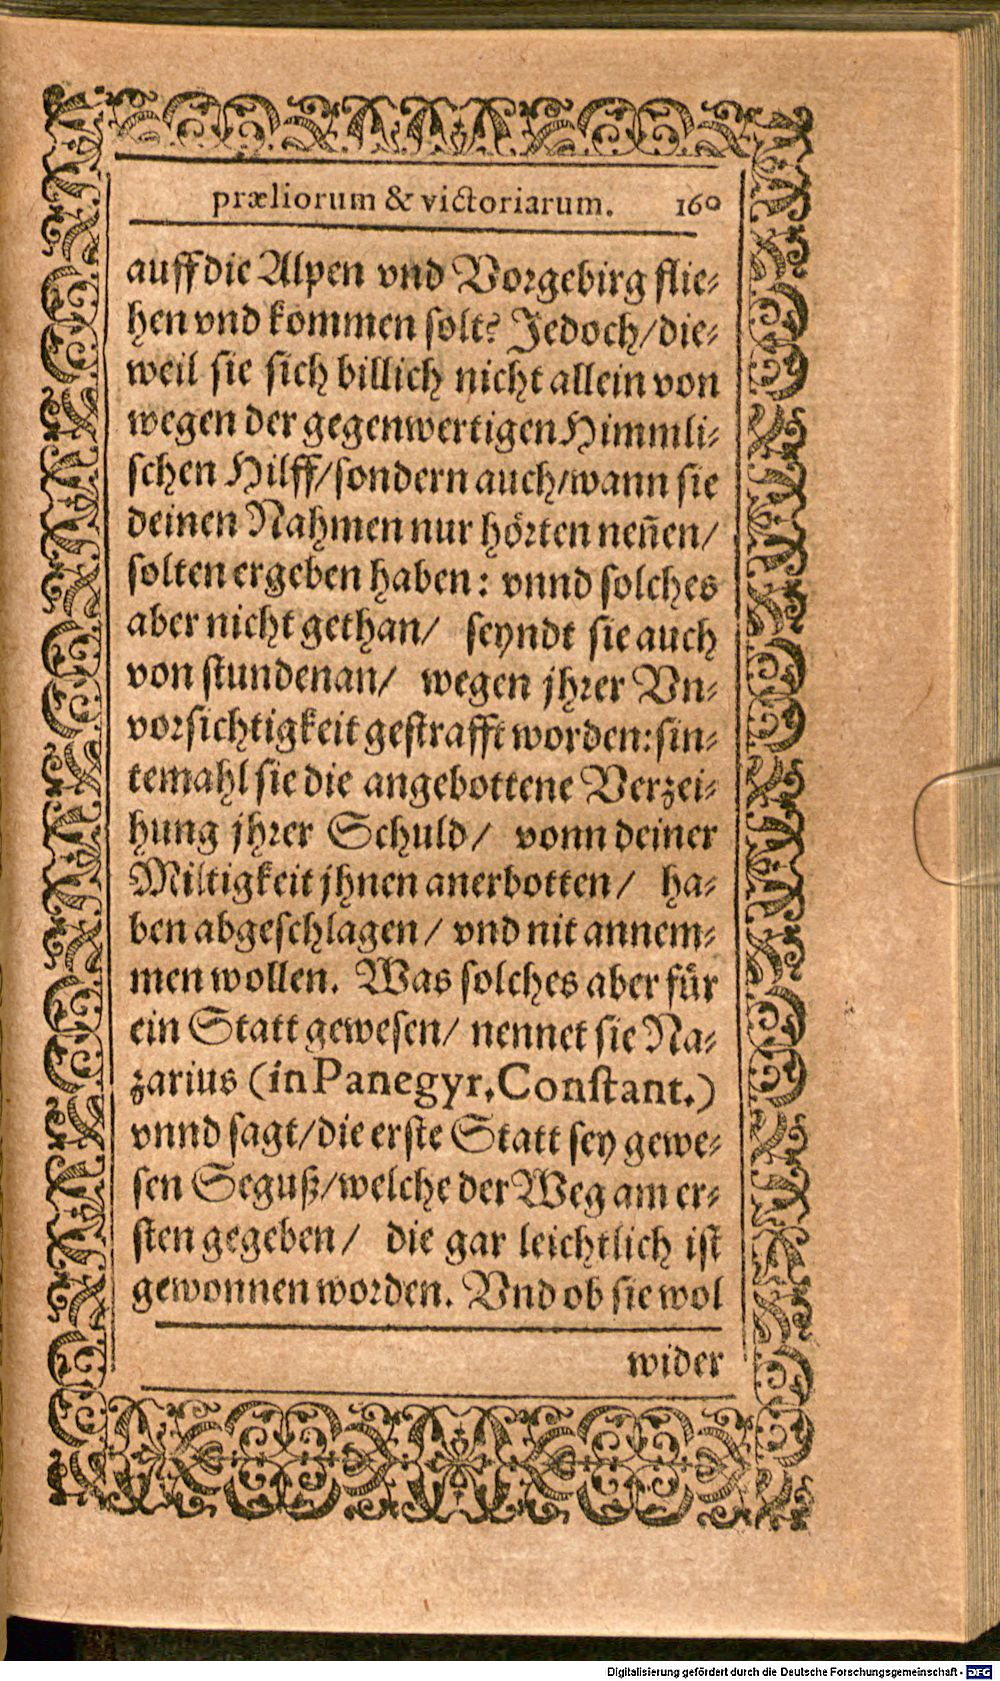 præliorum & victoriarum. 160
auff die Alpen vnd Vorgebirg flie-
hen vnd kommen solt? Jedoch/die-
weil sie sich billich nicht allein von
wegen der gegenwertigen Himmli-
schen Hilff/sondern auch/wann sie
deinen Nahmen nur hörten neñen/
solten ergeben haben: vnnd solches
aber nicht gethan/ seyndt sie auch
von stundenan/ wegen jhrer Vn-
vorsichtigkeit gestrafft worden: sin-
temahl sie die angebottene Verzei-
hung jhrer Schuld/ vonn deiner
Miltigkeit jhnen anerbotten/ ha-
ben abgeschlagen/ vnd nit annem-
men wollen. Was solches aber für
ein Statt gewesen/ nennet sie Na-
zarius (in Panegyr. Constant.)
vnnd sagt/die erste Statt sey gewe-
sen Seguß/welche der Weg am er-
sten gegeben/ die gar leichtlich ist
gewonnen worden. Vnd ob sie wol
wider
Digitalisierung gefördert durch die Deutsche Forschungsgemeinschaft - DFG